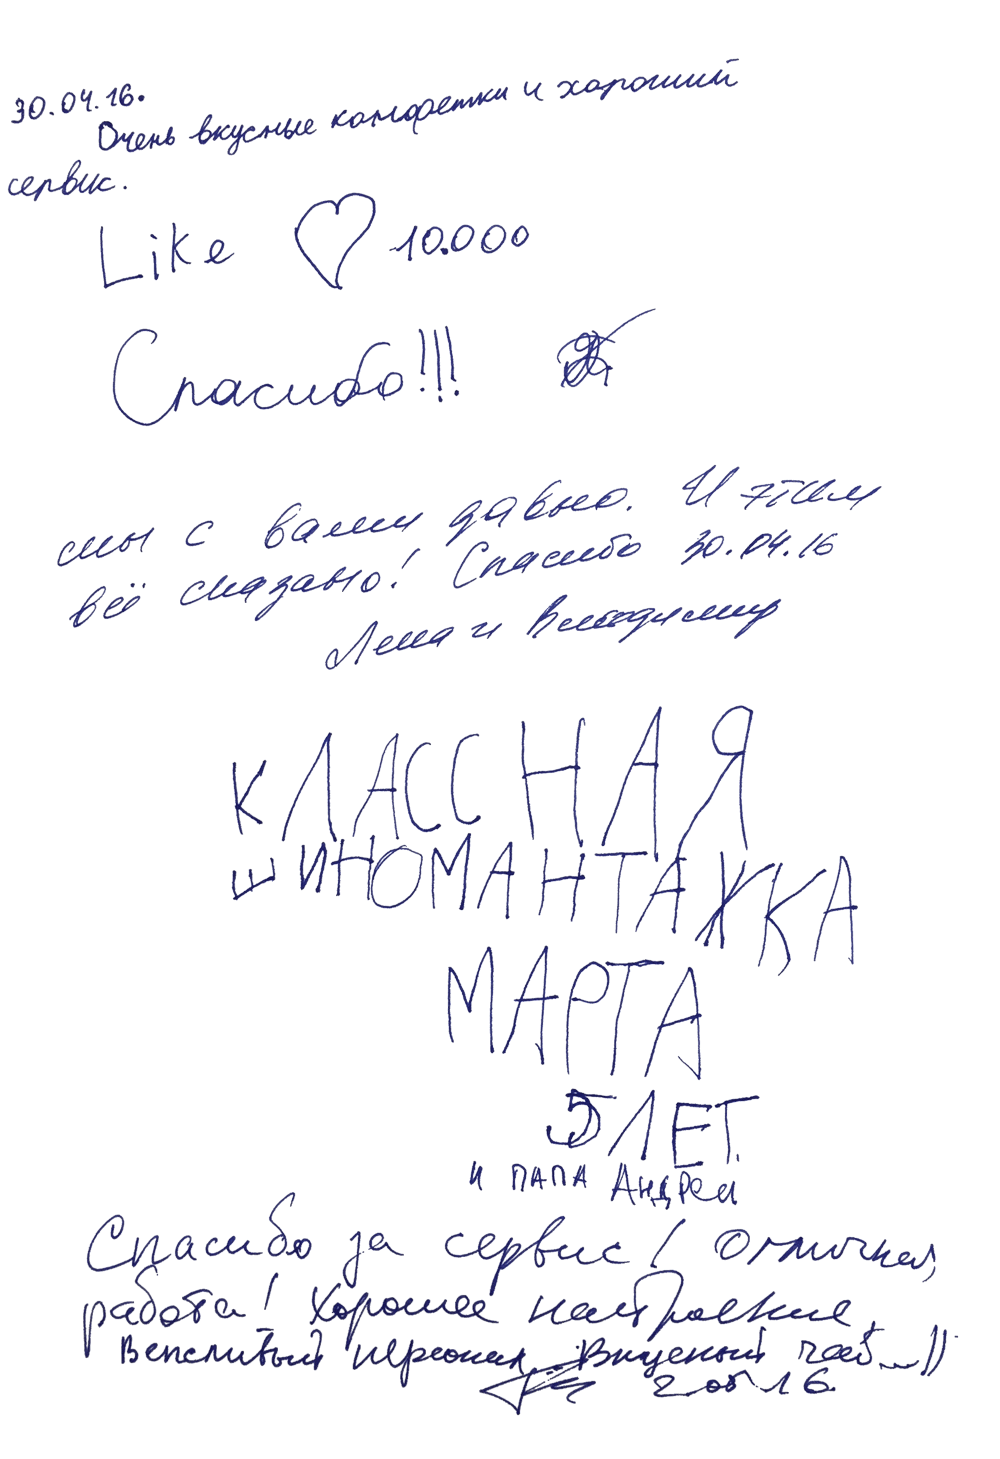 30.04.16.
Очень вкусные конфетки и хороший
сервис.
Like ♡ 10.000
Спасибо!!!
мы с вами давно. И этим
всё сказано! Спасибо 30.04.16
Лена и Владимир
КЛАССНАЯ
ШИНОМАНТАЖКА
МАРТА
5 ЛЕТ.
и ПАПА Андрей
Спасибо за сервис! Отличная
работа! Хорошее настроение,
Вепсливый персонал... Вкусный чай...))
2 05 16.